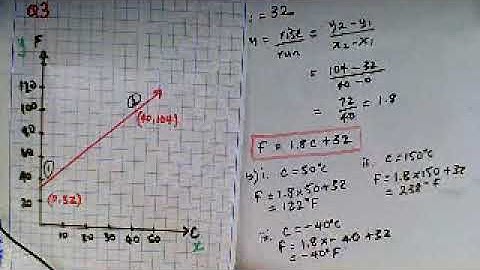 Q3
y F
120
100
80
60
40
20
①
②
(40,104)
(0,32)
10 20 30 40 50 C
x
i = 32
= rise/run = y2-y1/x2-x1
= 104-32/40-0
= 72/40 = 1.8
F = 1.8C+32
b) i. C=50°C
F=1.8x50+32
= 122°F
ii. C=150°C
F=1.8x150+32
= 238°F
C=-40°C
F=1.8x-40+32
= -40°F